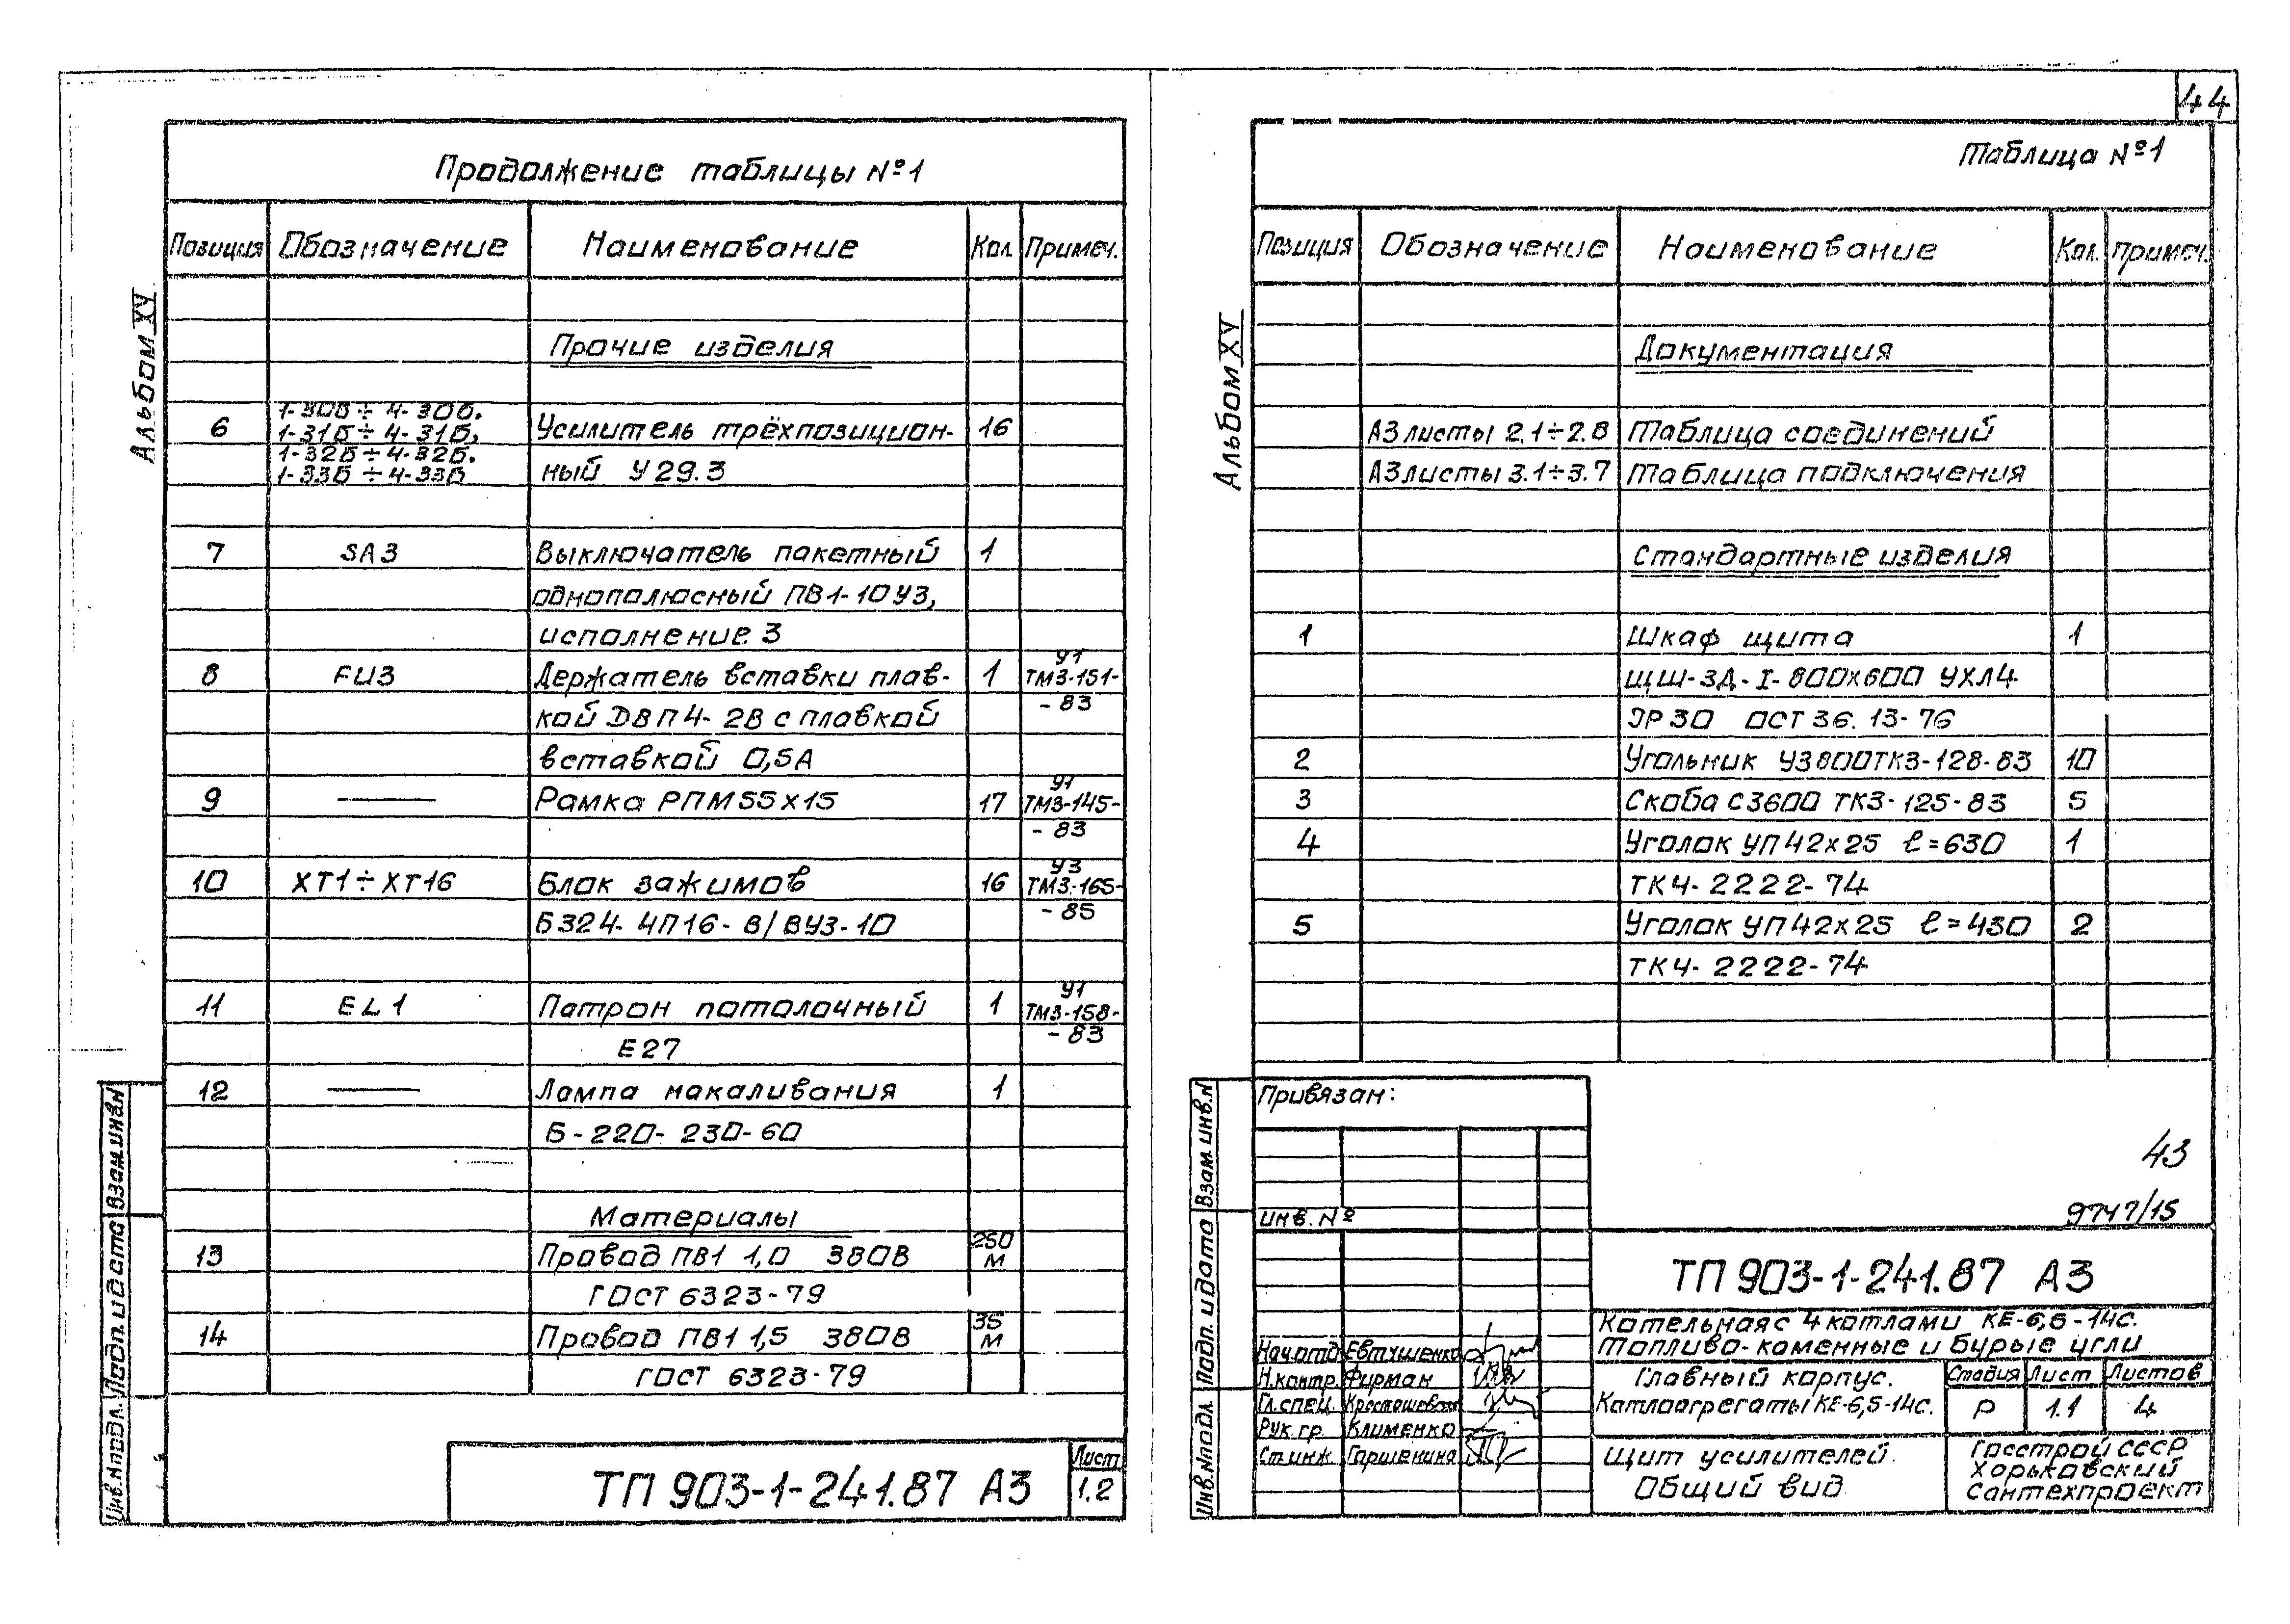 44
Альбом XV
Продолжение таблицы №1
Позиция Обозначение Наименование Кол. Примеч.
Прочие изделия
1-30б ÷ 4-30б.
6 1-31б ÷ 4-31б. Усилитель трёхпозицион- 16
1-32б ÷ 4-32б.
1-33б ÷ 4-33б ный У 29.3
7 SA3 Выключатель пакетный 1
однополюсный ПВ1-10 У3,
исполнение 3
8 FU3 Держатель вставки плав- 1 У1 ТМ3-151-
кой ДВП4-2В с плавкой -83
вставкой 0,5А
9 —— Рамка РПМ 55х15 17 У1 ТМ3-145-
-83
10 XT1÷XT16 Блок зажимов 16 У3 ТМ3-165-
Б324-4П16-В/ВУ3-10 -85
11 EL1 Патрон потолочный 1 У1 ТМ3-158-
Е27 -83
12 —— Лампа накаливания 1
Б-220-230-60
Материалы
13 Провод ПВ1 1,0 380В 250 м
ГОСТ 6323-79
14 Провод ПВ1 1,5 380В 35 м
ГОСТ 6323-79
Инв.№подл. Подп. и дата Взам.инв.№
ТП 903-1-241.87 А3
Лист
1.2
Альбом XV
Таблица №1
Позиция Обозначение Наименование Кол. Примеч.
Документация
А3 листы 2.1÷2.8 Таблица соединений
А3 листы 3.1÷3.7 Таблица подключения
Стандартные изделия
1 Шкаф щита 1
ЩШ-3Д-I-800х600 УХЛ4
JP30 ОСТ 36.13-76
2 Угольник У3800ТК3-128-83 10
3 Скоба С3600 ТК3-125-83 5
4 Уголок УП 42х25 ℓ=630 1
ТК4-2222-74
5 Уголок УП 42х25 ℓ=430 2
ТК4-2222-74
Инв.№подл. Подп. и дата Взам.инв.№
Привязан:
Инв.№
43
9747/15
ТП 903-1-241.87 А3
Котельная с 4 котлами КЕ-6,5-14с.
Топливо-каменные и бурые угли
Нач.отд Евтушенко
Н.контр. Фирман
Гл.спец.
Рук.гр. Клименко
Ст.инж. Гаршенина
Главный корпус.
Котлоагрегаты КЕ-6,5-14с.
Стадия Лист Листов
Р 1.1 4
Щит усилителей.
Общий вид
Госстрой СССР
Харьковский
Сантехпроект